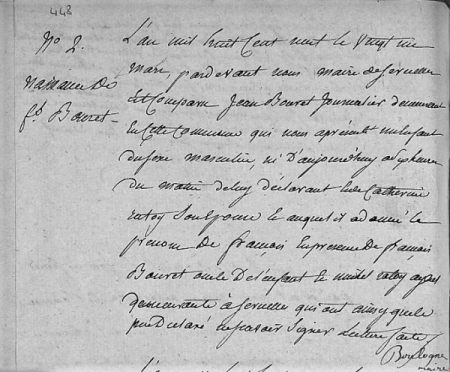 448
No 2.
Naissance De
f.d Bouret
L'an mil huit Cent huit le Vingt un
mars, pardevant nous maire de
Est Comparu Jean Bouret Journalier demeurant
En Cette Commune qui nous a présenté un Enfant
du sexe masculin, né D'aujourd'huy a heures
du matin de luy déclarant et de Catherine
son Epouse le auquel il a donné le
prénom De françois En présence De françois
Bouret oncle De l'enfant Et michel
demeurants à qui ont ainsy que le
père Declaré ne savoir Signer Lecture faite
Boulogne
maire